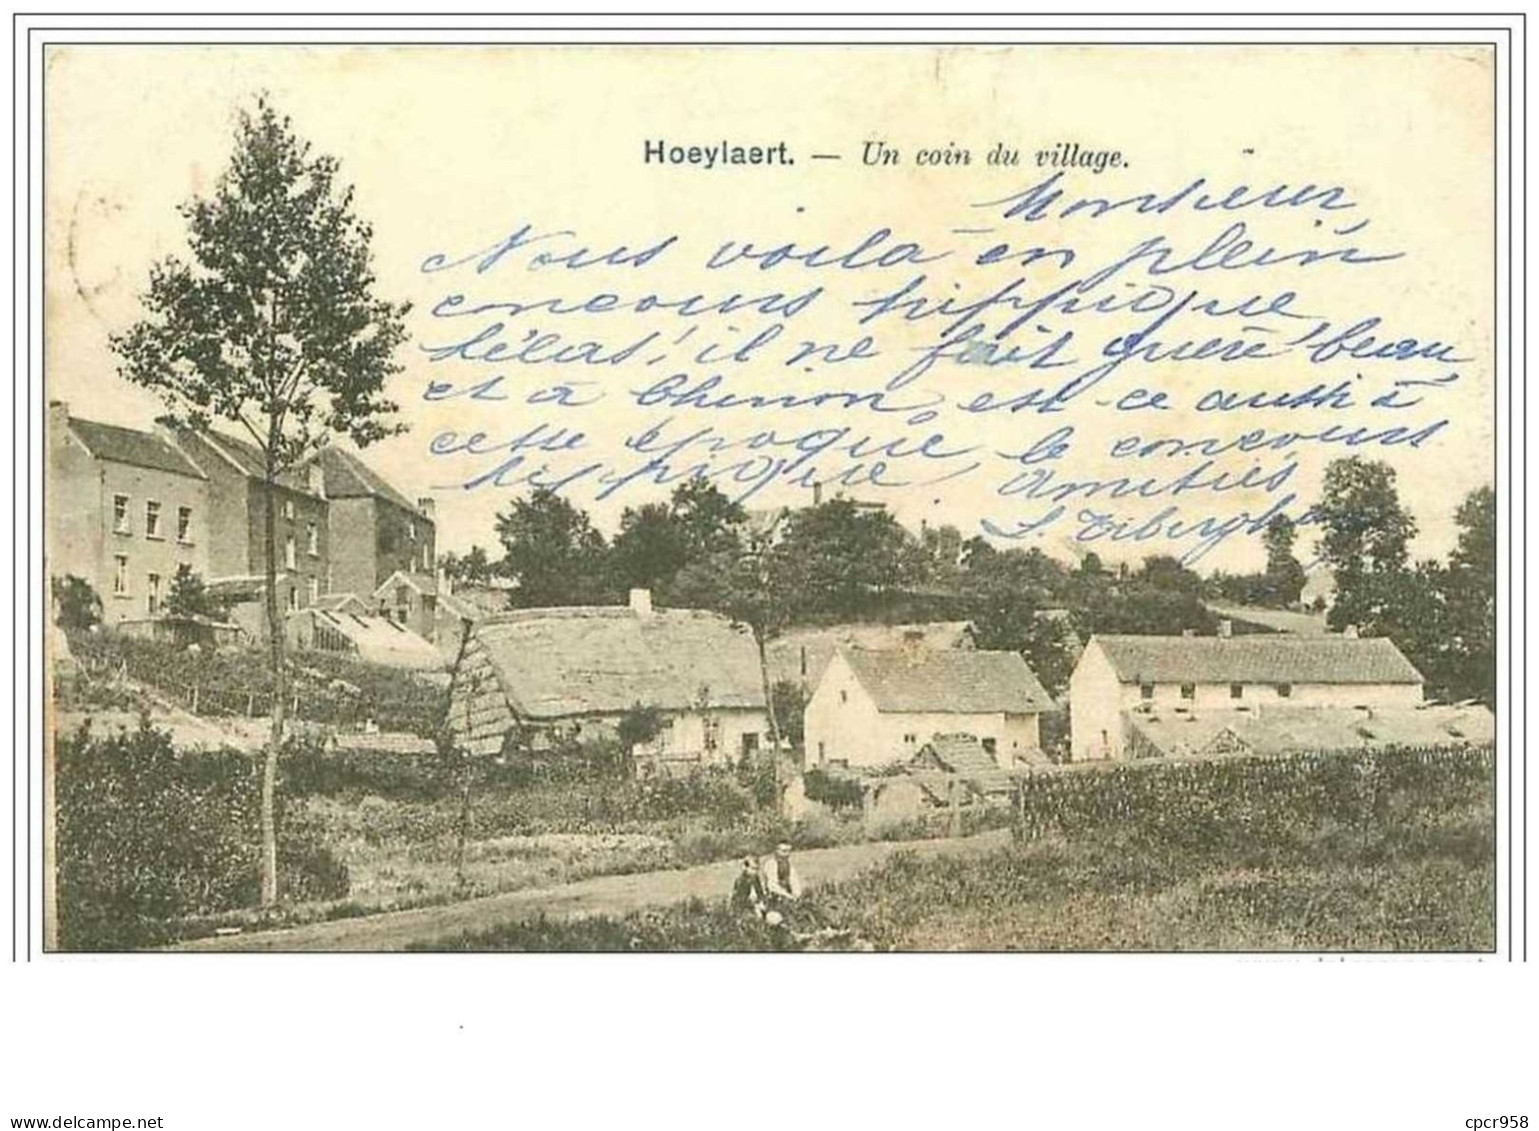 Hoeylaert. — Un coin du village.
Monsieur,
Nous voilà en plein
concours hippique
hélas! il ne fait guère beau
et à Chinon, est-ce aussi à
cette époque le concours
hippique
Amitiés
delcampe.net
cpcr958